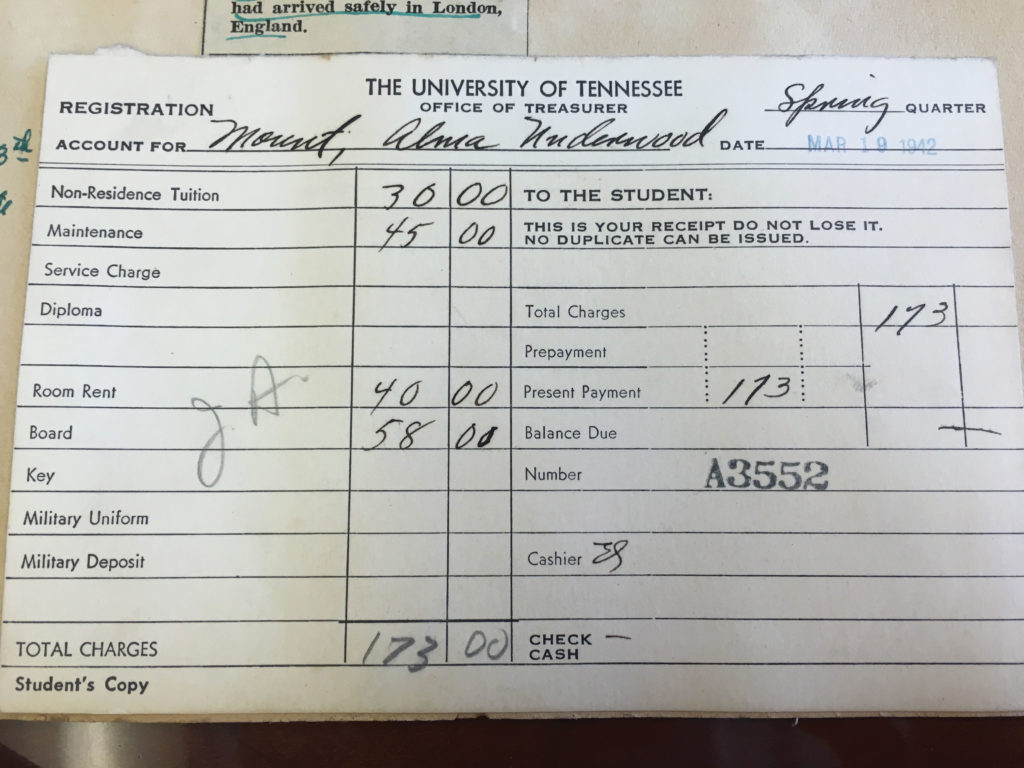 had arrived safely in London,
England.
THE UNIVERSITY OF TENNESSEE
OFFICE OF TREASURER
REGISTRATION
Spring QUARTER
ACCOUNT FOR Mount, Alma Underwood DATE MAR 19 1942
3rd
Non-Residence Tuition 30 00 TO THE STUDENT:
Maintenance 45 00 THIS IS YOUR RECEIPT DO NOT LOSE IT.
NO DUPLICATE CAN BE ISSUED.
Service Charge
Diploma Total Charges 173
Prepayment
Room Rent 40 00 Present Payment 173
Board 58 00 Balance Due —
Key Number A3552
Military Uniform
Military Deposit Cashier
TOTAL CHARGES 173 00 CHECK —
CASH
Student's Copy